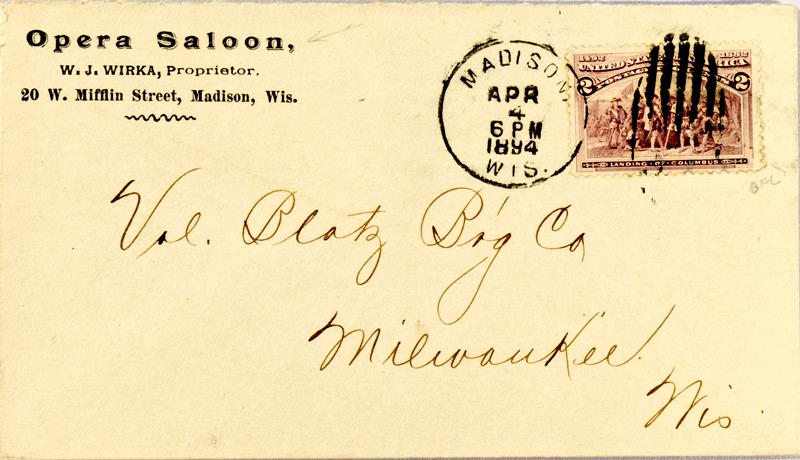 Opera Saloon,
W. J. WIRKA, Proprietor.
20 W. Mifflin Street, Madison, Wis.
MADISON,
APR
4
6 PM
1894
WIS.
1492 1892
UNITED STATES OF AMERICA
2 2
LANDING OF COLUMBUS
Val. Blatz B'g Co
Milwaukee.
Wis.